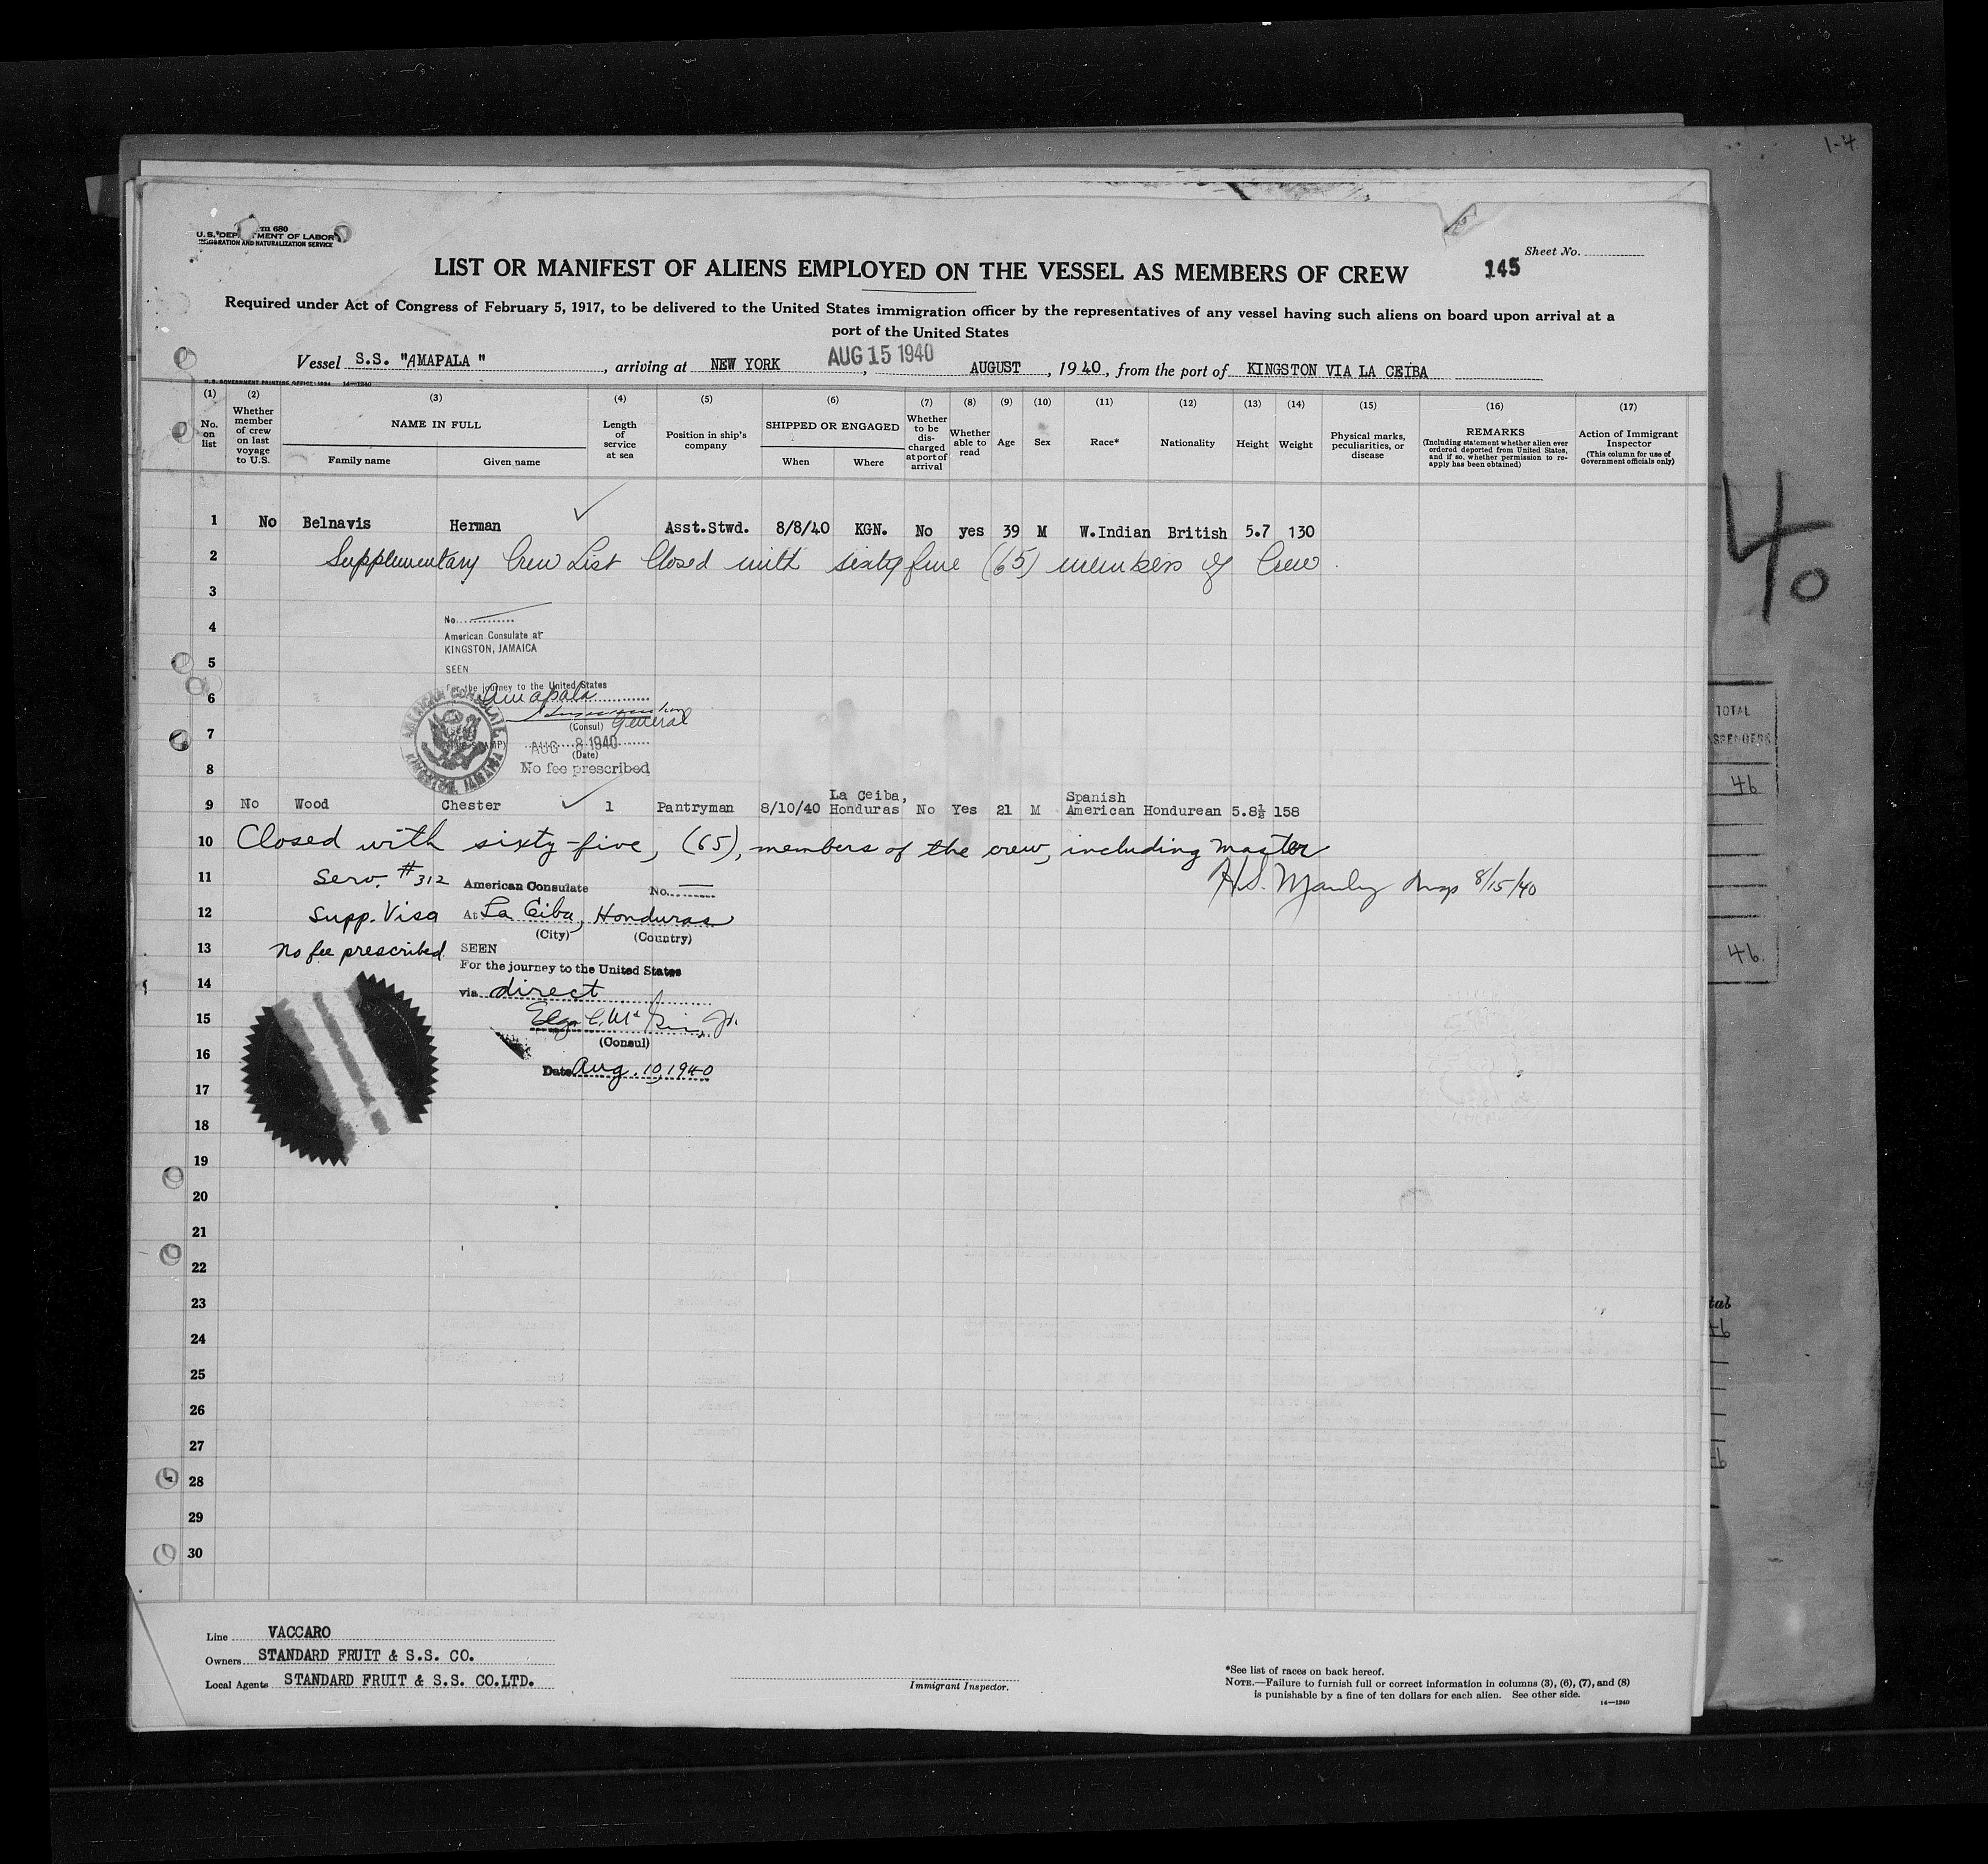 1-4
rm 680
U.S. DEP TMENT OF LABOR
IMMIGRATION AND NATURALIZATION SERVICE
Sheet No.
LIST OR MANIFEST OF ALIENS EMPLOYED ON THE VESSEL AS MEMBERS OF CREW
145
Required under Act of Congress of February 5, 1917, to be delivered to the United States immigration officer by the representatives of any vessel having such aliens on board upon arrival at a
port of the United States
Vessel S.S. "AMAPALA ", arriving at NEW YORK, AUG 15 1940 AUGUST, 1940, from the port of KINGSTON VIA LA CEIBA
U. S. GOVERNMENT PRINTING OFFICE: 1934 14—1240
(1) No. on list
(2) Whether member of crew on last voyage to U.S.
(3) NAME IN FULL
Family name Given name
(4) Length of service at sea
(5) Position in ship's company
(6) SHIPPED OR ENGAGED
When Where
(7) Whether to be discharged at port of arrival
(8) Whether able to read
(9) Age
(10) Sex
(11) Race*
(12) Nationality
(13) Height
(14) Weight
(15) Physical marks, peculiarities, or disease
(16) REMARKS (Including statement whether alien ever ordered deported from United States, and if so, whether permission to re-apply has been obtained)
(17) Action of Immigrant Inspector (This column for use of Government officials only)
1 No Belnavis Herman Asst.Stwd. 8/8/40 KGN. No yes 39 M W.Indian British 5.7 130
2 Supplementary Crew List Closed with sixty five (65) members of Crew.
3
No.
4
American Consulate at
KINGSTON, JAMAICA
5
SEEN
For the journey to the United States
6
Amapala
(Consul) General
7
AMERICAN CONSULATE KINGSTON, JAMAICA
AUG 8 1940
(Date)
8
No fee prescribed
9 No Wood Chester 1 Pantryman 8/10/40 La Ceiba, Honduras No Yes 21 M Spanish American Hondurean 5.8½ 158
10 Closed with sixty-five, (65), members of the crew, including master
11 Serv. #312 American Consulate No.
H.S. Manley Insp 8/15/40
12 Supp. Visa At La Ceiba, Honduras
(City) (Country)
13 No fee prescribed SEEN
For the journey to the United States
14
via direct
15
(Consul)
16
Date Aug. 10, 1940
17
18
19
20
21
22
23
24
25
26
27
28
29
30
Line VACCARO
Owners STANDARD FRUIT & S.S. CO.
Local Agents STANDARD FRUIT & S.S. CO.LTD.
Immigrant Inspector.
*See list of races on back hereof.
NOTE.—Failure to furnish full or correct information in columns (3), (6), (7), and (8)
is punishable by a fine of ten dollars for each alien. See other side.
14—1240
40
TOTAL
46
46
tal